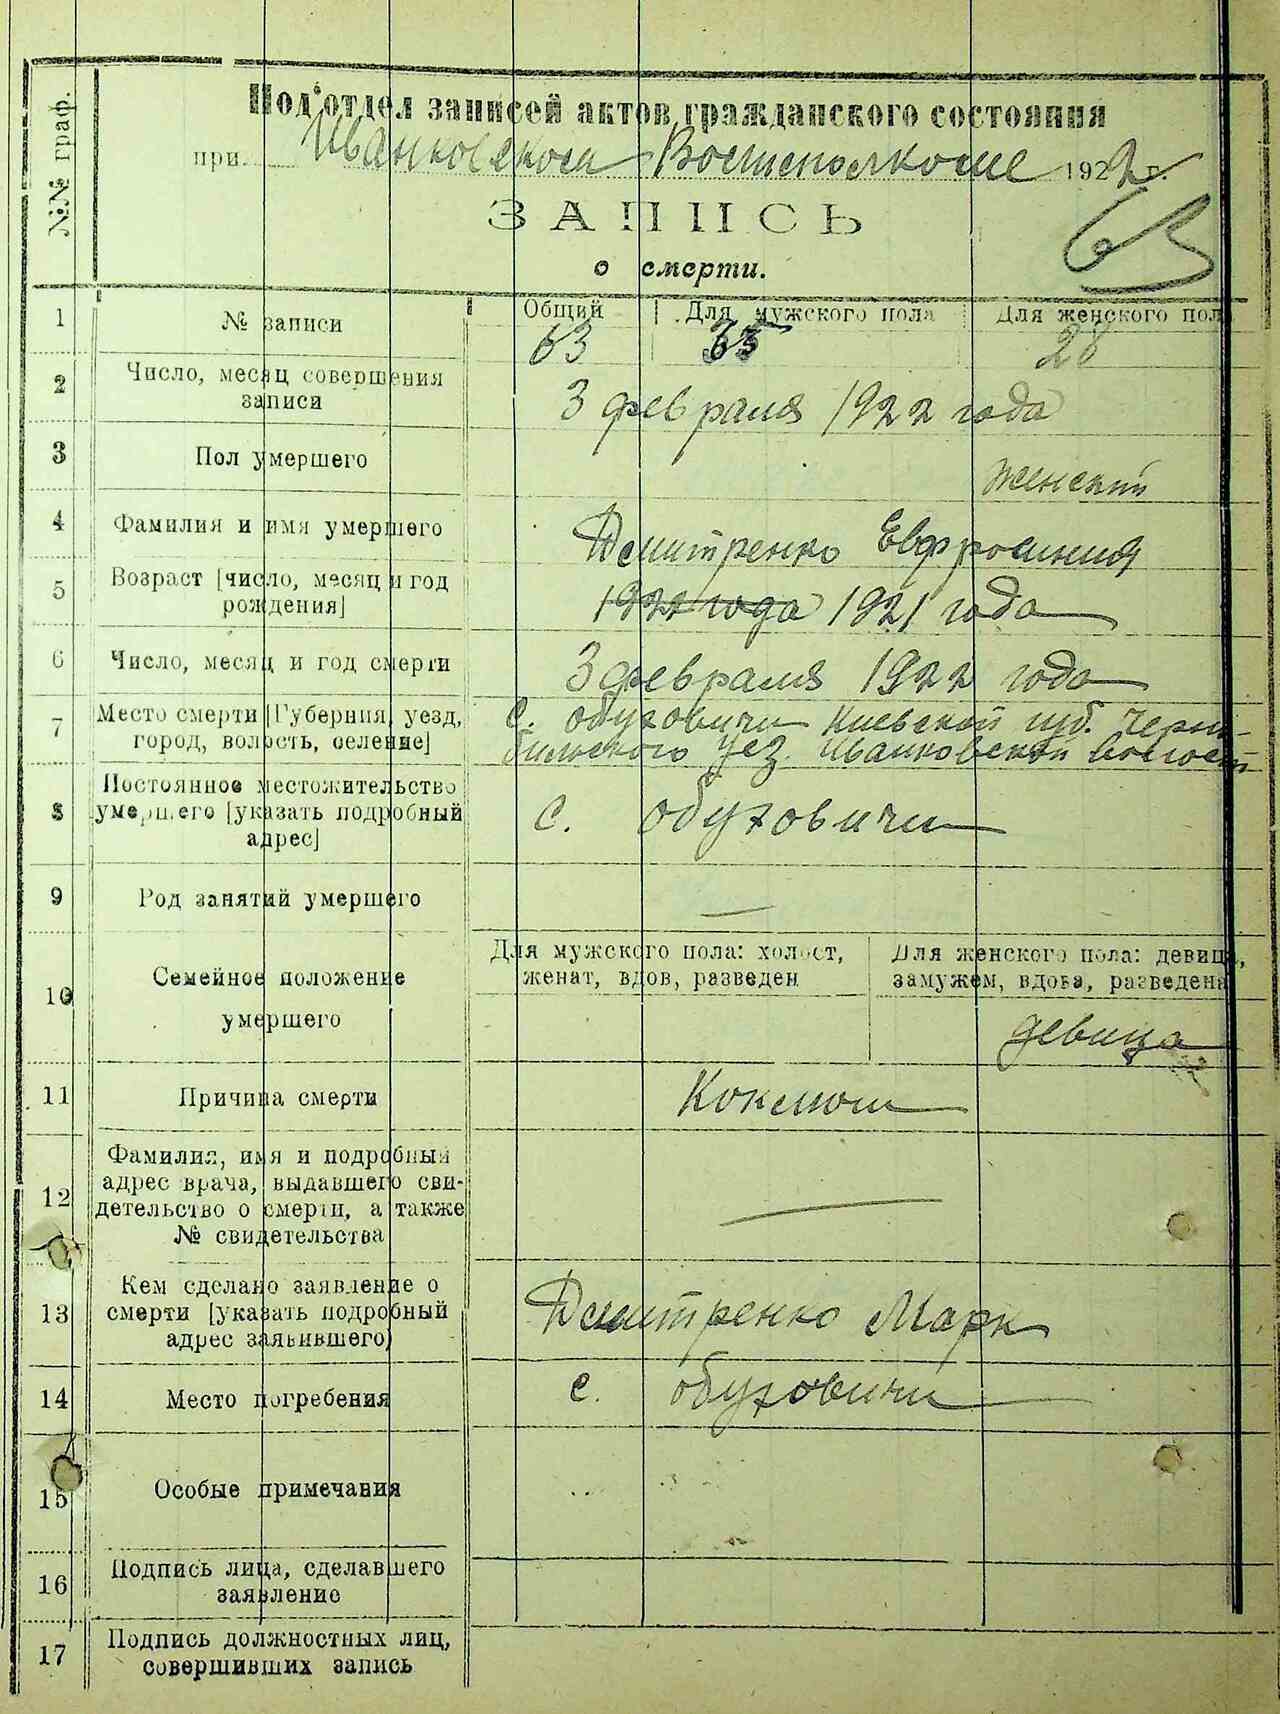 №№ граф.
Подотдел записей актов гражданского состояния
при Иванковском Волисполкоме 1922 г.
63
ЗАПИСЬ
о смерти.
1 № записи Общий Для мужского пола Для женского пола
63 35 28
2 Число, месяц совершения
записи
3 февраля 1922 года
3 Пол умершего
женский
4 Фамилия и имя умершего
Дмитренко Евфросиния
5 Возраст [число, месяц и год
рождения]
1922 года 1921 года
6 Число, месяц и год смерти
3 февраля 1922 года
7 Место смерти [Губерния, уезд,
город, волость, селение]
с. Обуховичи Киевской губ. Черно-
бильского уез. Иванковской волости
8 Постоянное местожительство
умершего [указать подробный
адрес]
с. Обуховичи
9 Род занятий умершего
—
10 Семейное положение
умершего
Для мужского пола: холост,
женат, вдов, разведен
Для женского пола: девица,
замужем, вдова, разведена
девица
11 Причина смерти
Коклюш
12 Фамилия, имя и подробный
адрес врача, выдавшего сви-
детельство о смерти, а также
№ свидетельства
—
13 Кем сделано заявление о
смерти [указать подробный
адрес заявившего)
Дмитренко Марк
14 Место погребения
с. Обуховичи
15 Особые примечания
16 Подпись лица, сделавшего
заявление
17 Подпись должностных лиц,
совершивших запись